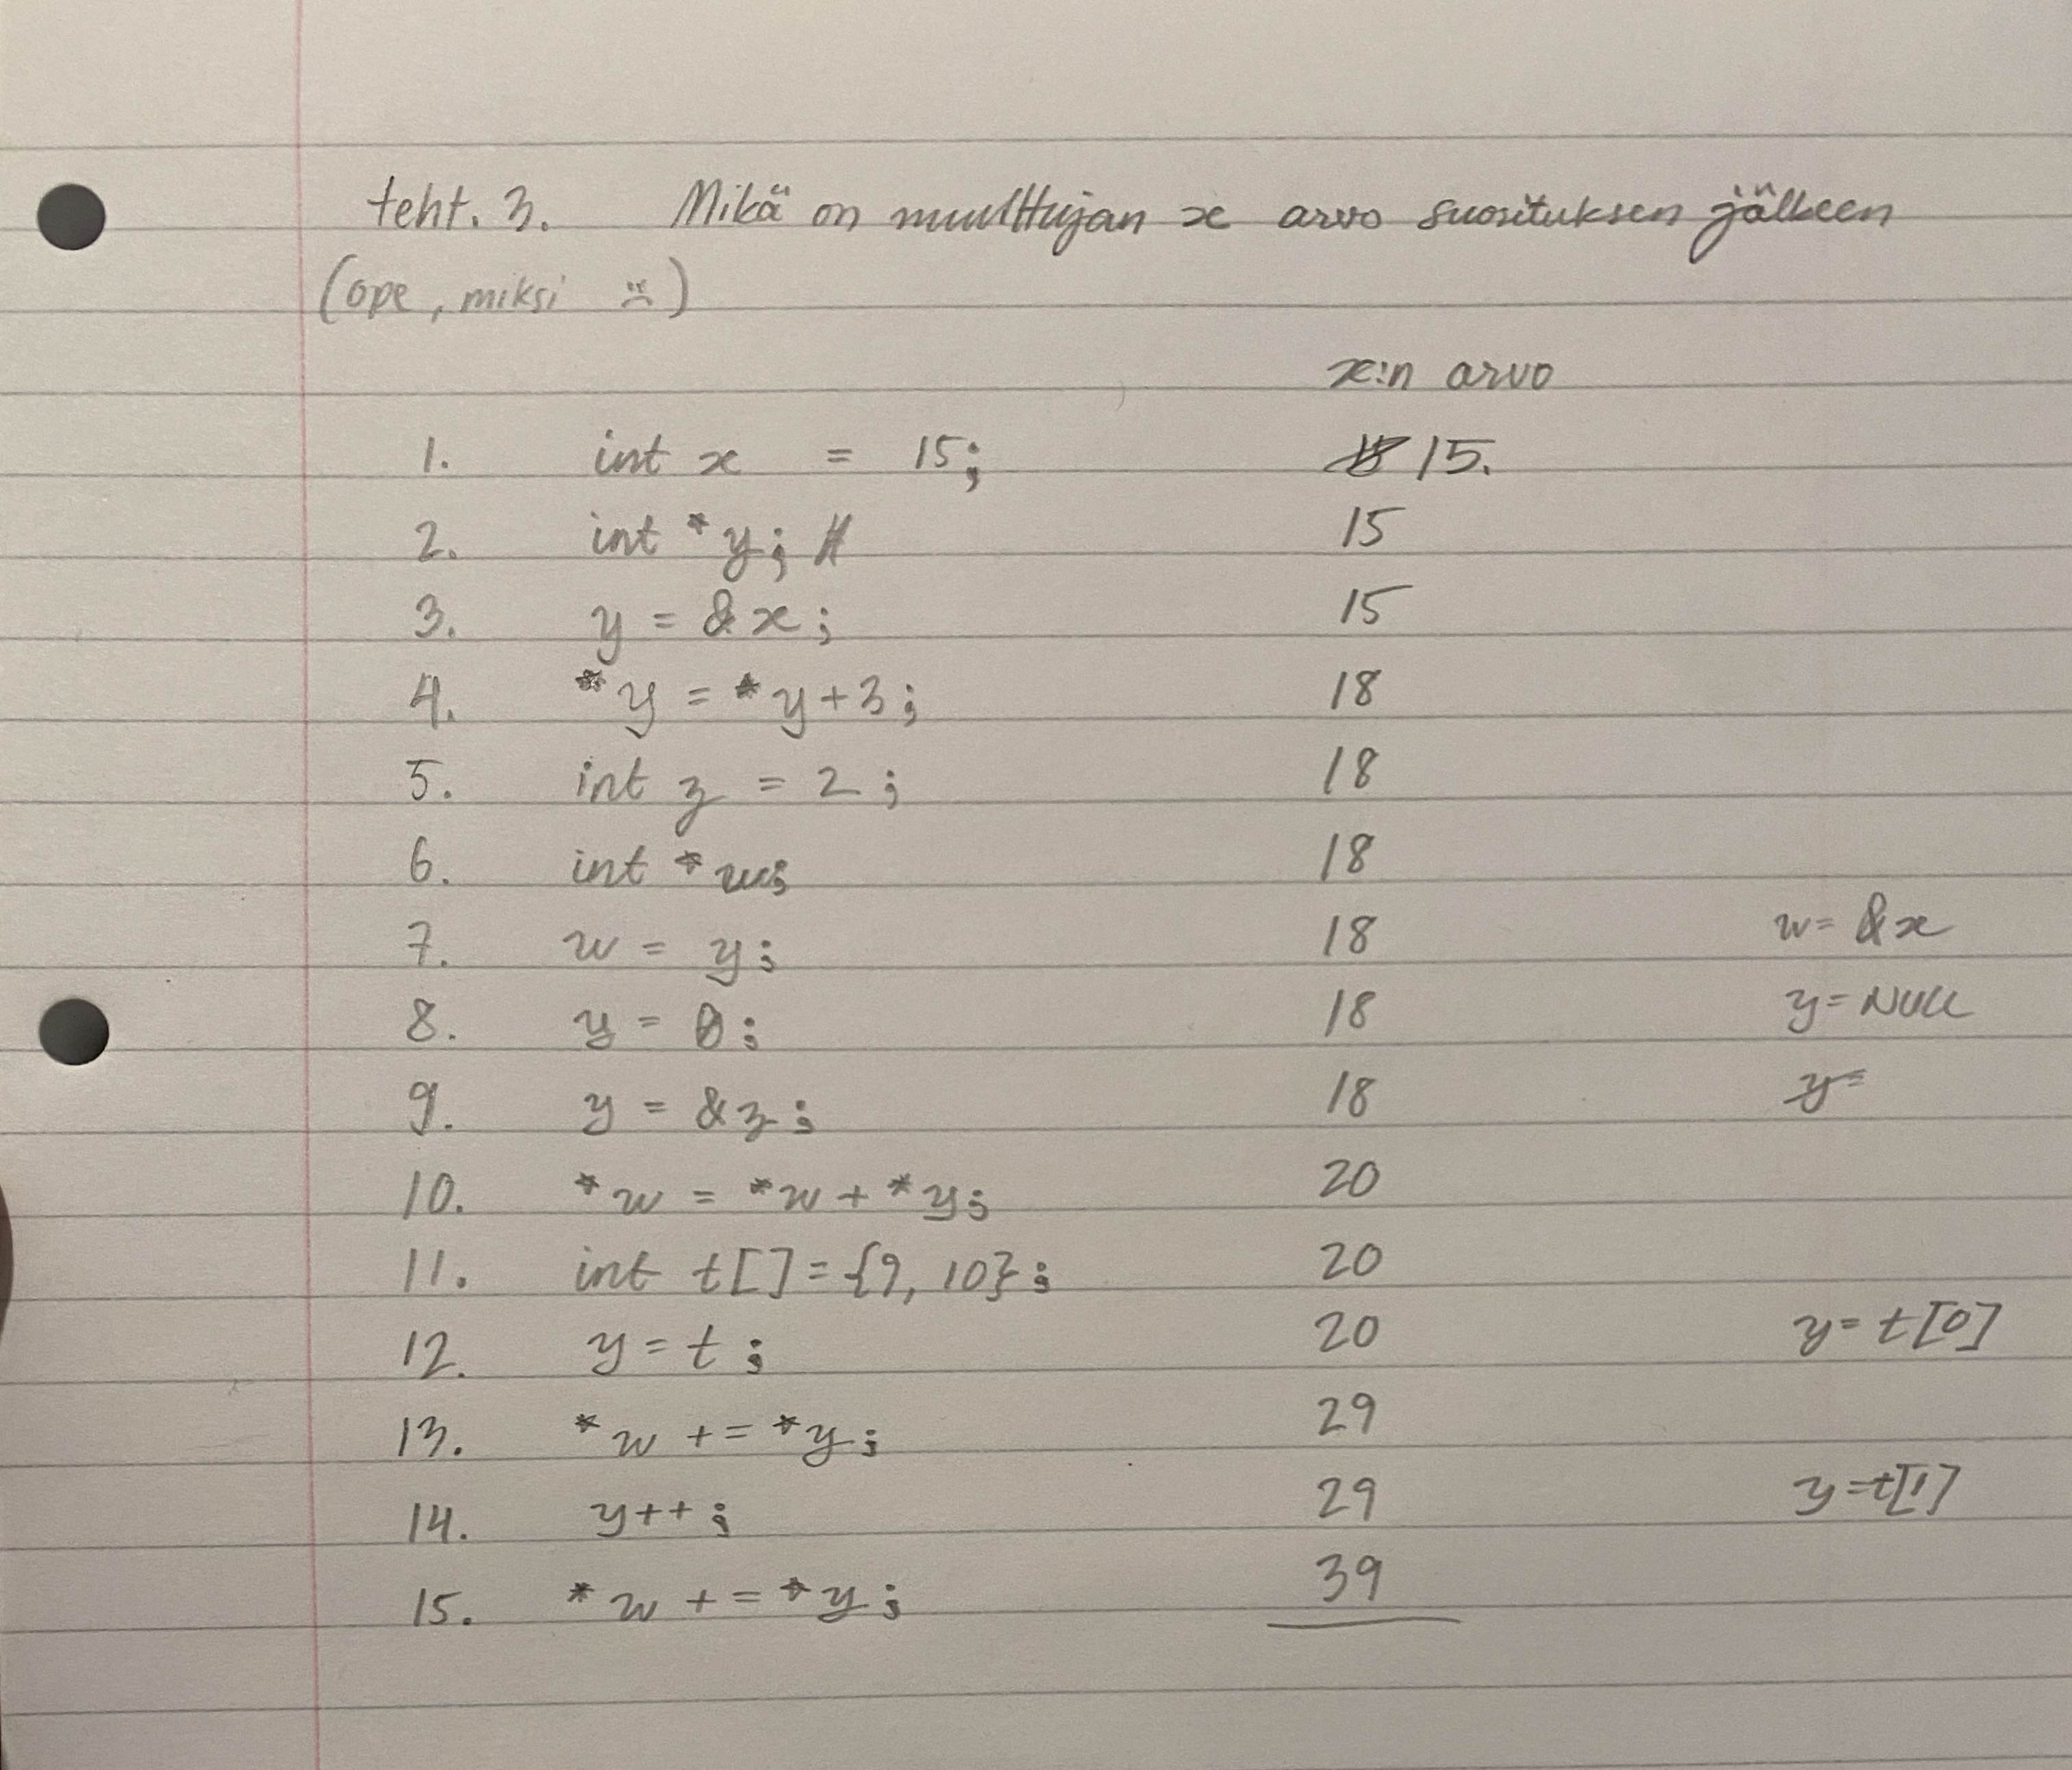 teht. 3. Mikä on muuttujan x arvo suorituksen jälkeen
(ope, miksi :()
x:n arvo
1. int x = 15; 15.
2. int *y; 15
3. y = &x; 15
4. *y = *y+3; 18
5. int z = 2; 18
6. int *w; 18
7. w = y; 18 w= &x
8. y = 0; 18 y= NULL
9. y = &z; 18 y=
10. *w = *w + *y; 20
11. int t[]={9, 10}; 20
12. y = t; 20 y= t[0]
13. *w += *y; 29
14. y++; 29 y=t[1]
15. *w += *y; 39